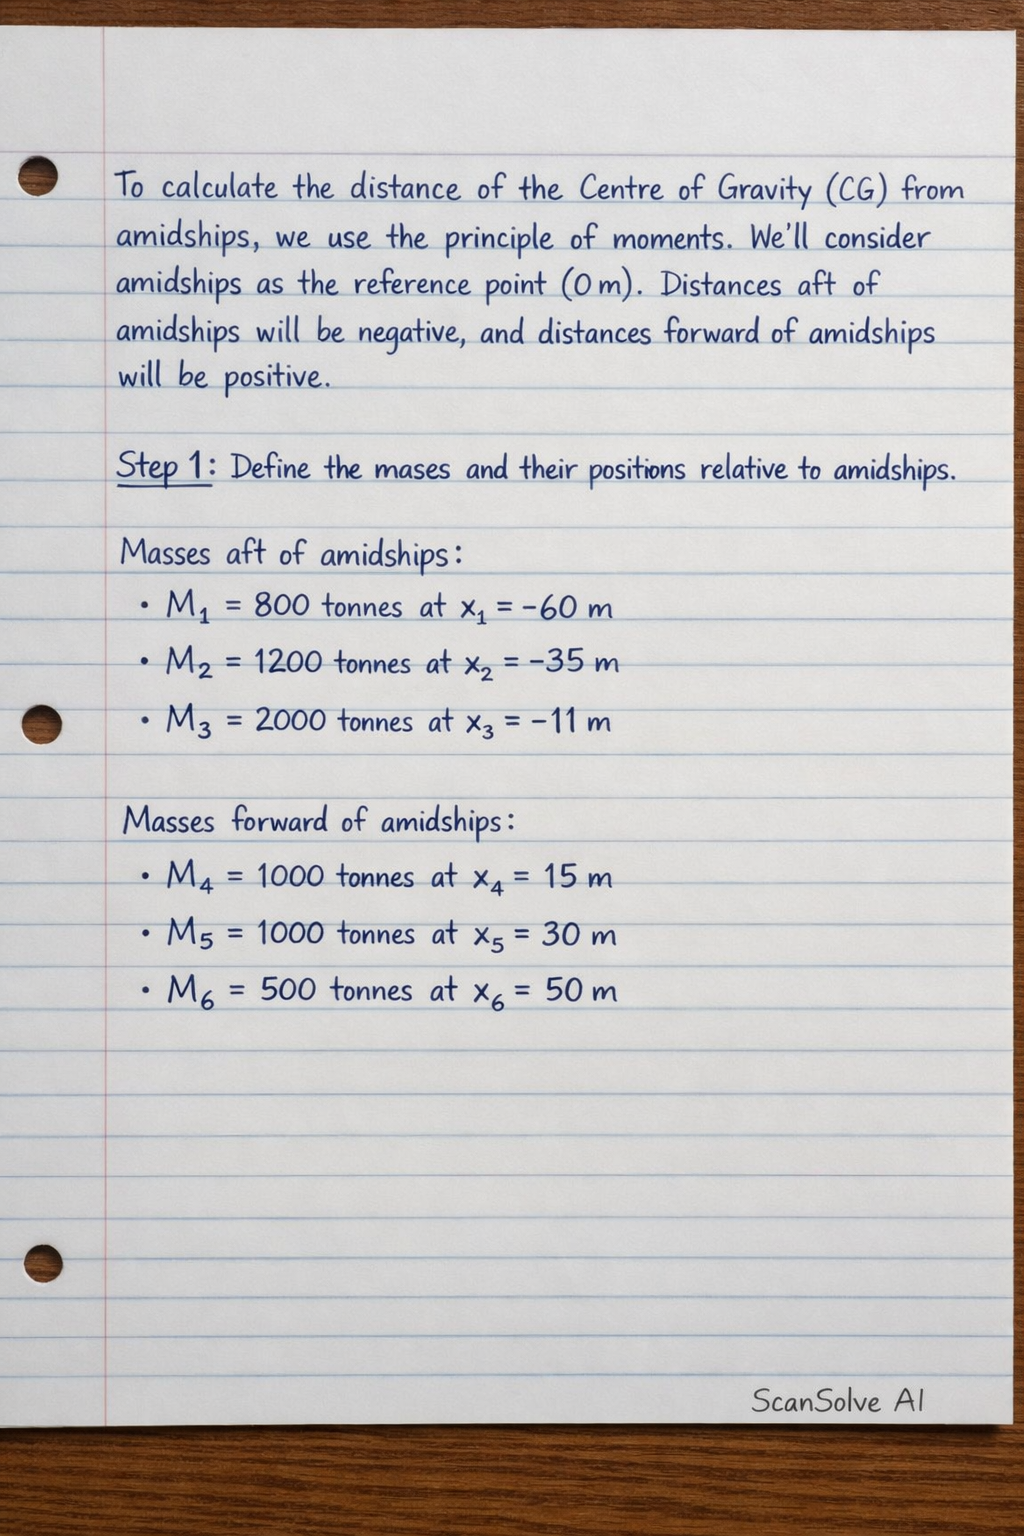 To calculate the distance of the Centre of Gravity (CG) from
amidships, we use the principle of moments. We'll consider
amidships as the reference point (0 m). Distances aft of
amidships will be negative, and distances forward of amidships
will be positive.
Step 1: Define the mases and their positions relative to amidships.
Masses aft of amidships:
• M₁ = 800 tonnes at x₁ = -60 m
• M₂ = 1200 tonnes at x₂ = -35 m
• M₃ = 2000 tonnes at x₃ = -11 m
Masses forward of amidships:
• M₄ = 1000 tonnes at x₄ = 15 m
• M₅ = 1000 tonnes at x₅ = 30 m
• M₆ = 500 tonnes at x₆ = 50 m
ScanSolve AI